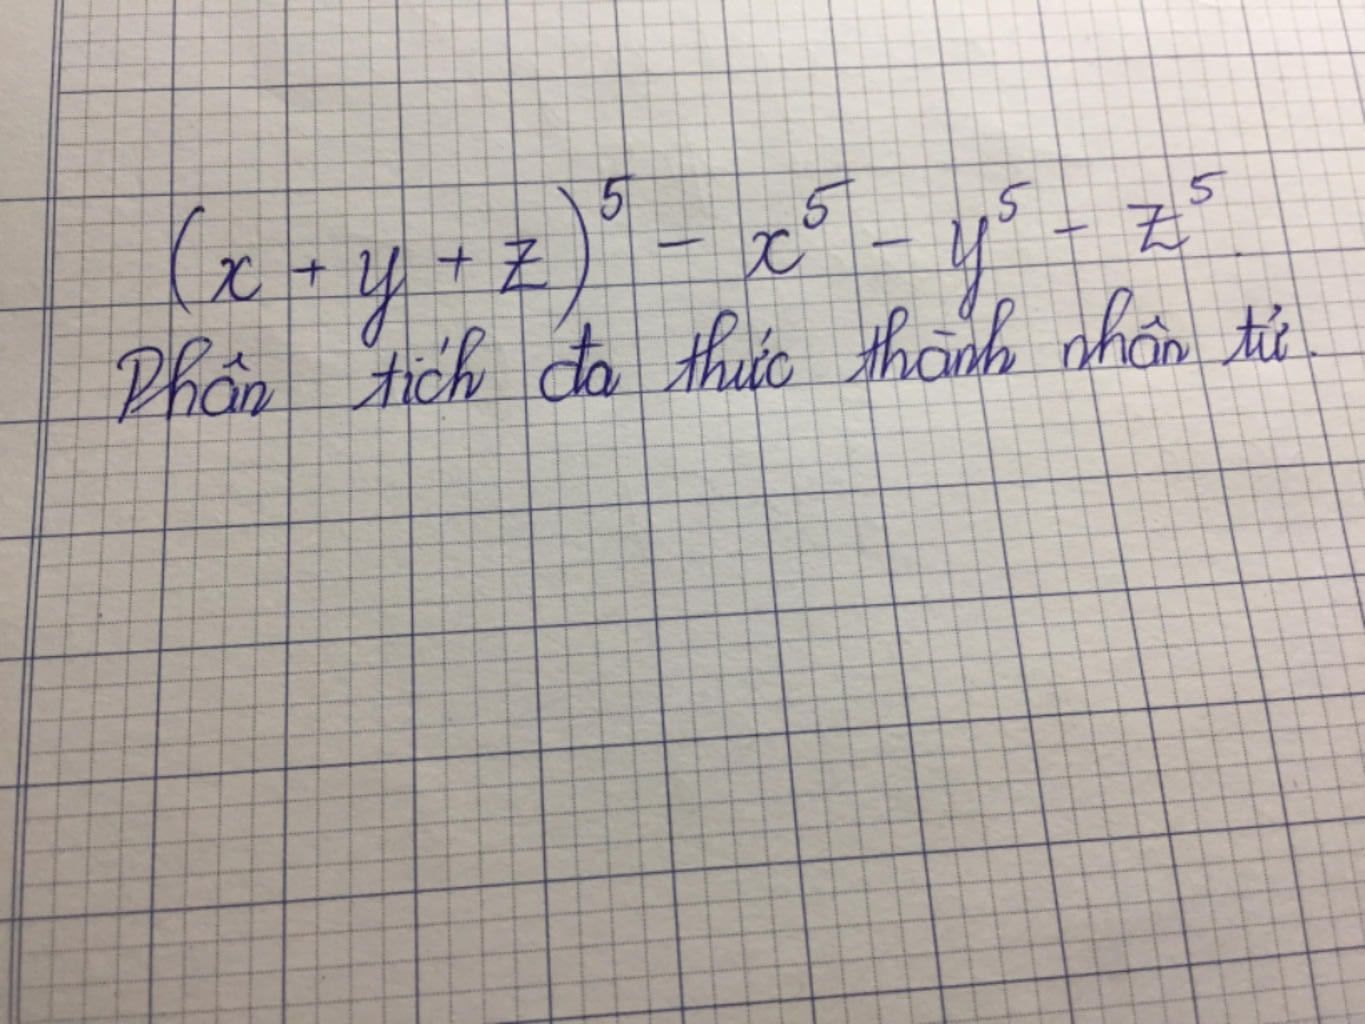 (x + y + z)⁵ - x⁵ - y⁵ - z⁵.
Phân tích đa thức thành nhân tử.